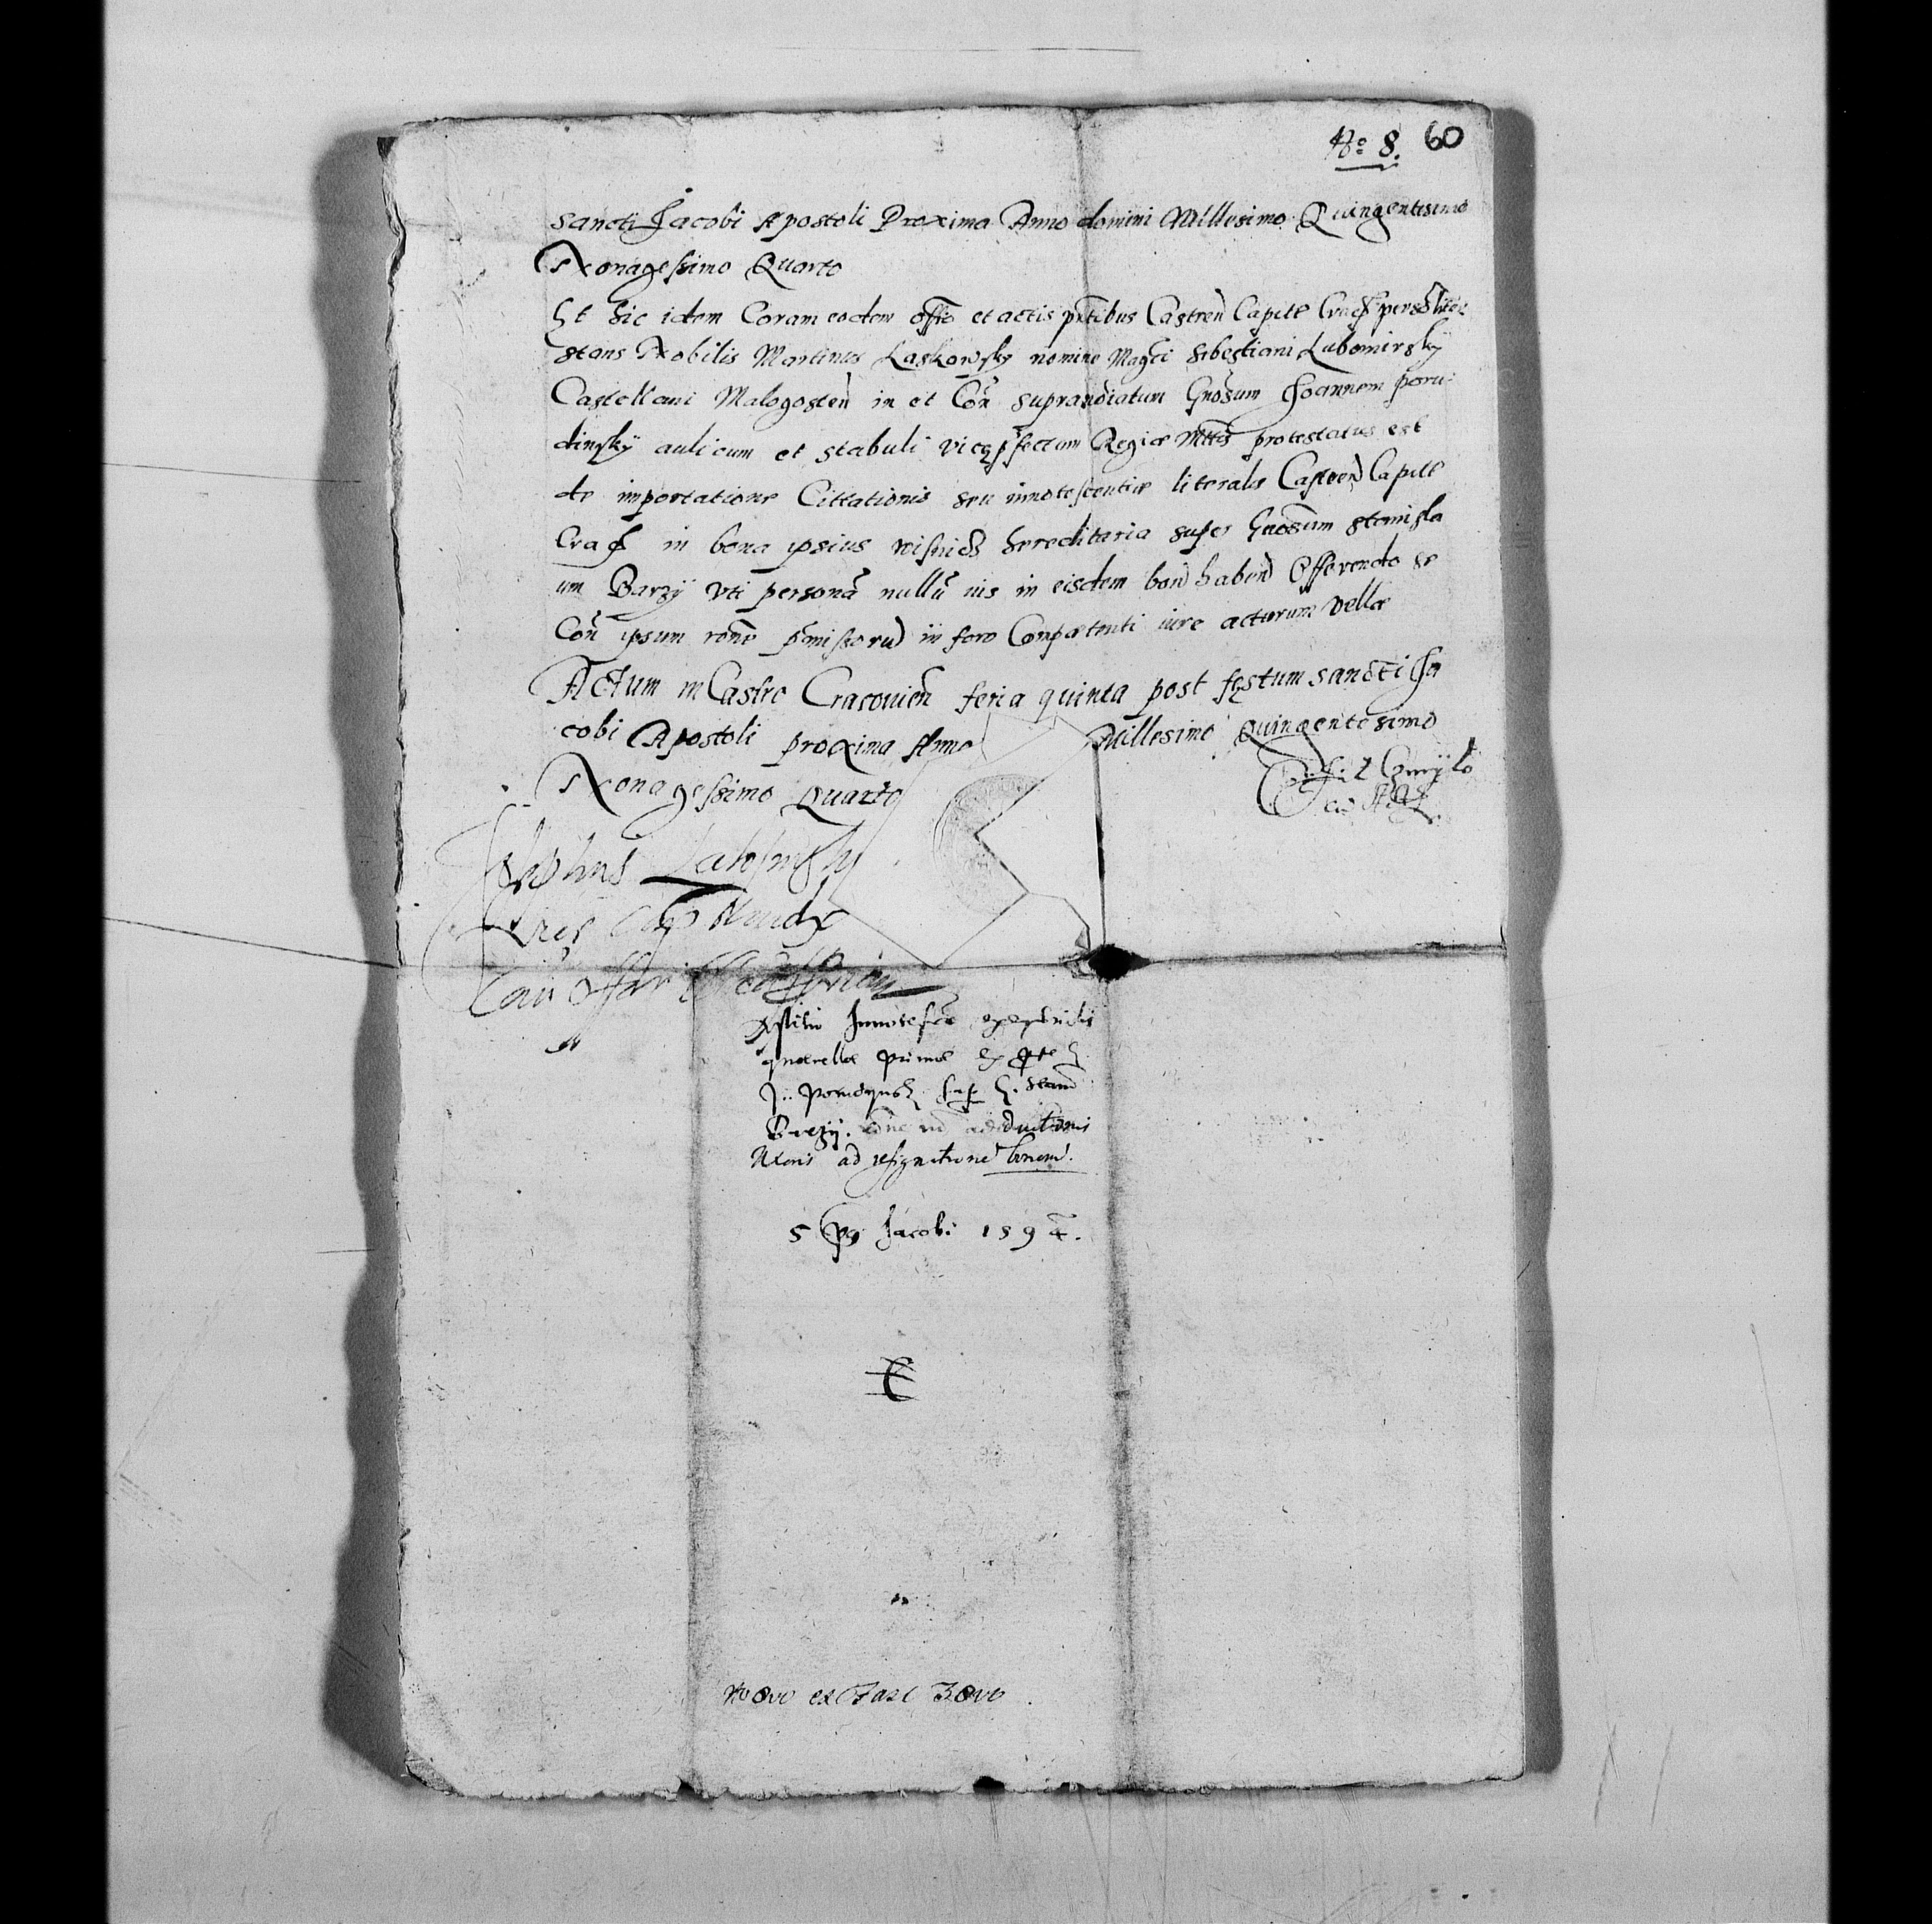 No 8. 60
Sancti Jacobi Apostoli Proxima Anno domini Millesimo Quingentesimo
Nonagessimo Quarto
Et hic idem Coram eodem offio et actis pntibus Castren Capitt Crac personliter
stans Nobilis Martinus Laskowsky nomine Magci Sebestiani Lubomirsky
Castellani Malogosten in et Con supranoiatum Gnosum Joannem poru-
dinsky aulicum et stabuli vicepfectum Regiae Mttis protestatus est
de importatione Cittationis seu innotescentiae literalis Castren Capitt
Crac in bona ipsius hereditaria super Gnosum stanisla
um Barzy uti persona nullu ius in eisdem bon haben Offerendo se
Con ipsum rone pmissoru in foro Competenti iure acturum velle
Actum in Castro Cracovien feria quinta post festum sancti Ja
cobi Apostoli proxima Anno Millesimo Quingentesimo
Nonagessimo Quarto
querellae primae ex pte G
J. Porudynsk G. Stani
Barzy. adductionis
Uxoris ad resignatione bonoru.
5 pt Jacobi 1594.
No 8vo ex Fasc 38vo